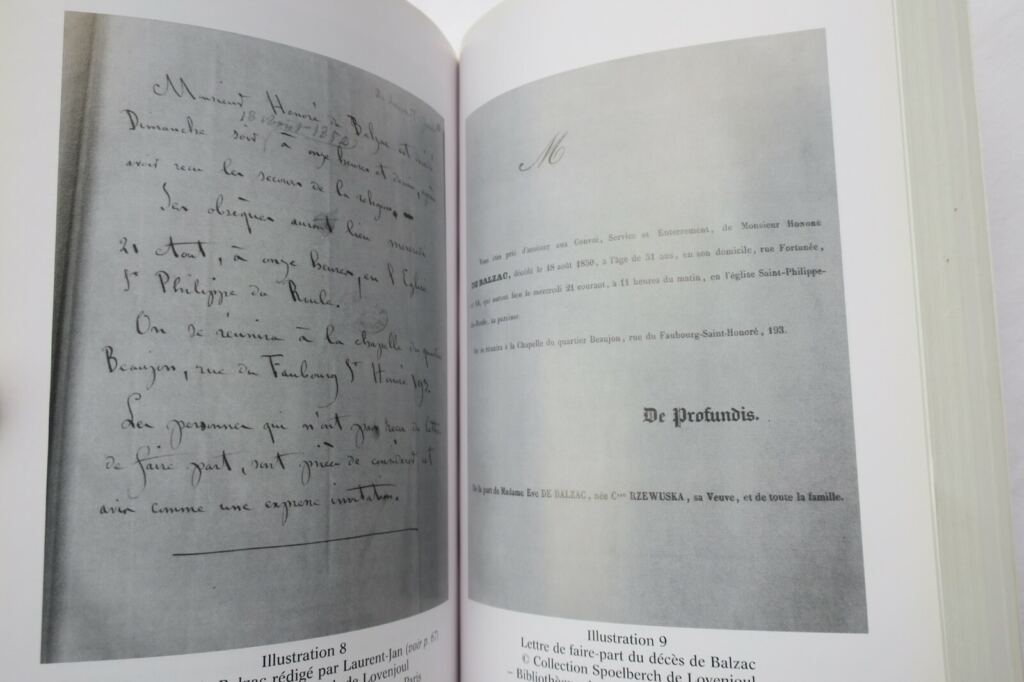 Monsieur Honoré de Balzac est
18 Août 1850
Dimanche soir, à onze heures et demie, après
avoir reçu les secours de la religion.
Ses obsèques auront lieu mercredi
21 Aout, à onze heures, en l'Eglise
St Philippe du Roule.
On se réunira à la chapelle du quartier
Beaujon, rue du Faubourg St Honoré 193.
Les personnes qui n'ont pas reçu de lettre
de faire part, sont priées de considérer cet
avis comme une expresse invitation.
Illustration 8
Balzac rédigé par Laurent-Jan (voir p. 67)
de Lovenjoul
Paris
M
Vous êtes prié d'assister aux Convoi, Service et Enterrement, de Monsieur HONORÉ
DE BALZAC, décédé le 18 août 1850, à l'âge de 51 ans, en son domicile, rue Fortunée,
qui auront lieu le mercredi 21 courant, à 11 heures du matin, en l'église Saint-Philippe-
du-Roule, sa paroisse.
On se réunira à la Chapelle du quartier Beaujon, rue du Faubourg-Saint-Honoré, 193.
De Profundis.
De la part de Madame Eve DE BALZAC, née Csse RZEWUSKA, sa Veuve, et de toute la famille.
Illustration 9
Lettre de faire-part du décès de Balzac
© Collection Spoelberch de Lovenjoul
– Bibliothèque de